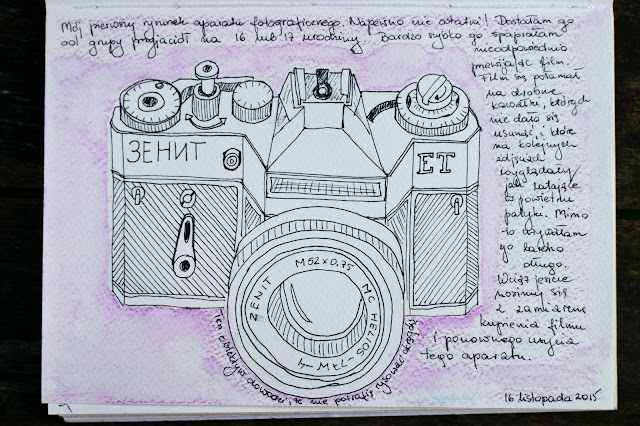 Mój pierwszy rysunek aparatu fotograficznego. Napewno nie ostatni! Dostałam go
od grupy przyjaciół na 16 lub 17 urodziny. Bardzo szybko go spaprałam
nieodpowiednio
zwijając film.
Film się połamał
na drobne
kawałki, których
nie dało się
usunąć, i które
na kolejnych
zdjęciach
wyglądały
jak latające
w powietrzu
patyki. Mimo
to używałam
go bardzo
długo.
Wciąż jeszcze
noszę się
z zamiarem
kupienia filmu
i ponownego użycia
tego aparatu.
ЗЕНИТ
ET
ZENIT M52x0,75 MC HELIOS
Ten obiektyw dowodzi, że nie potrafię rysować okręgów
16 listopada 2015